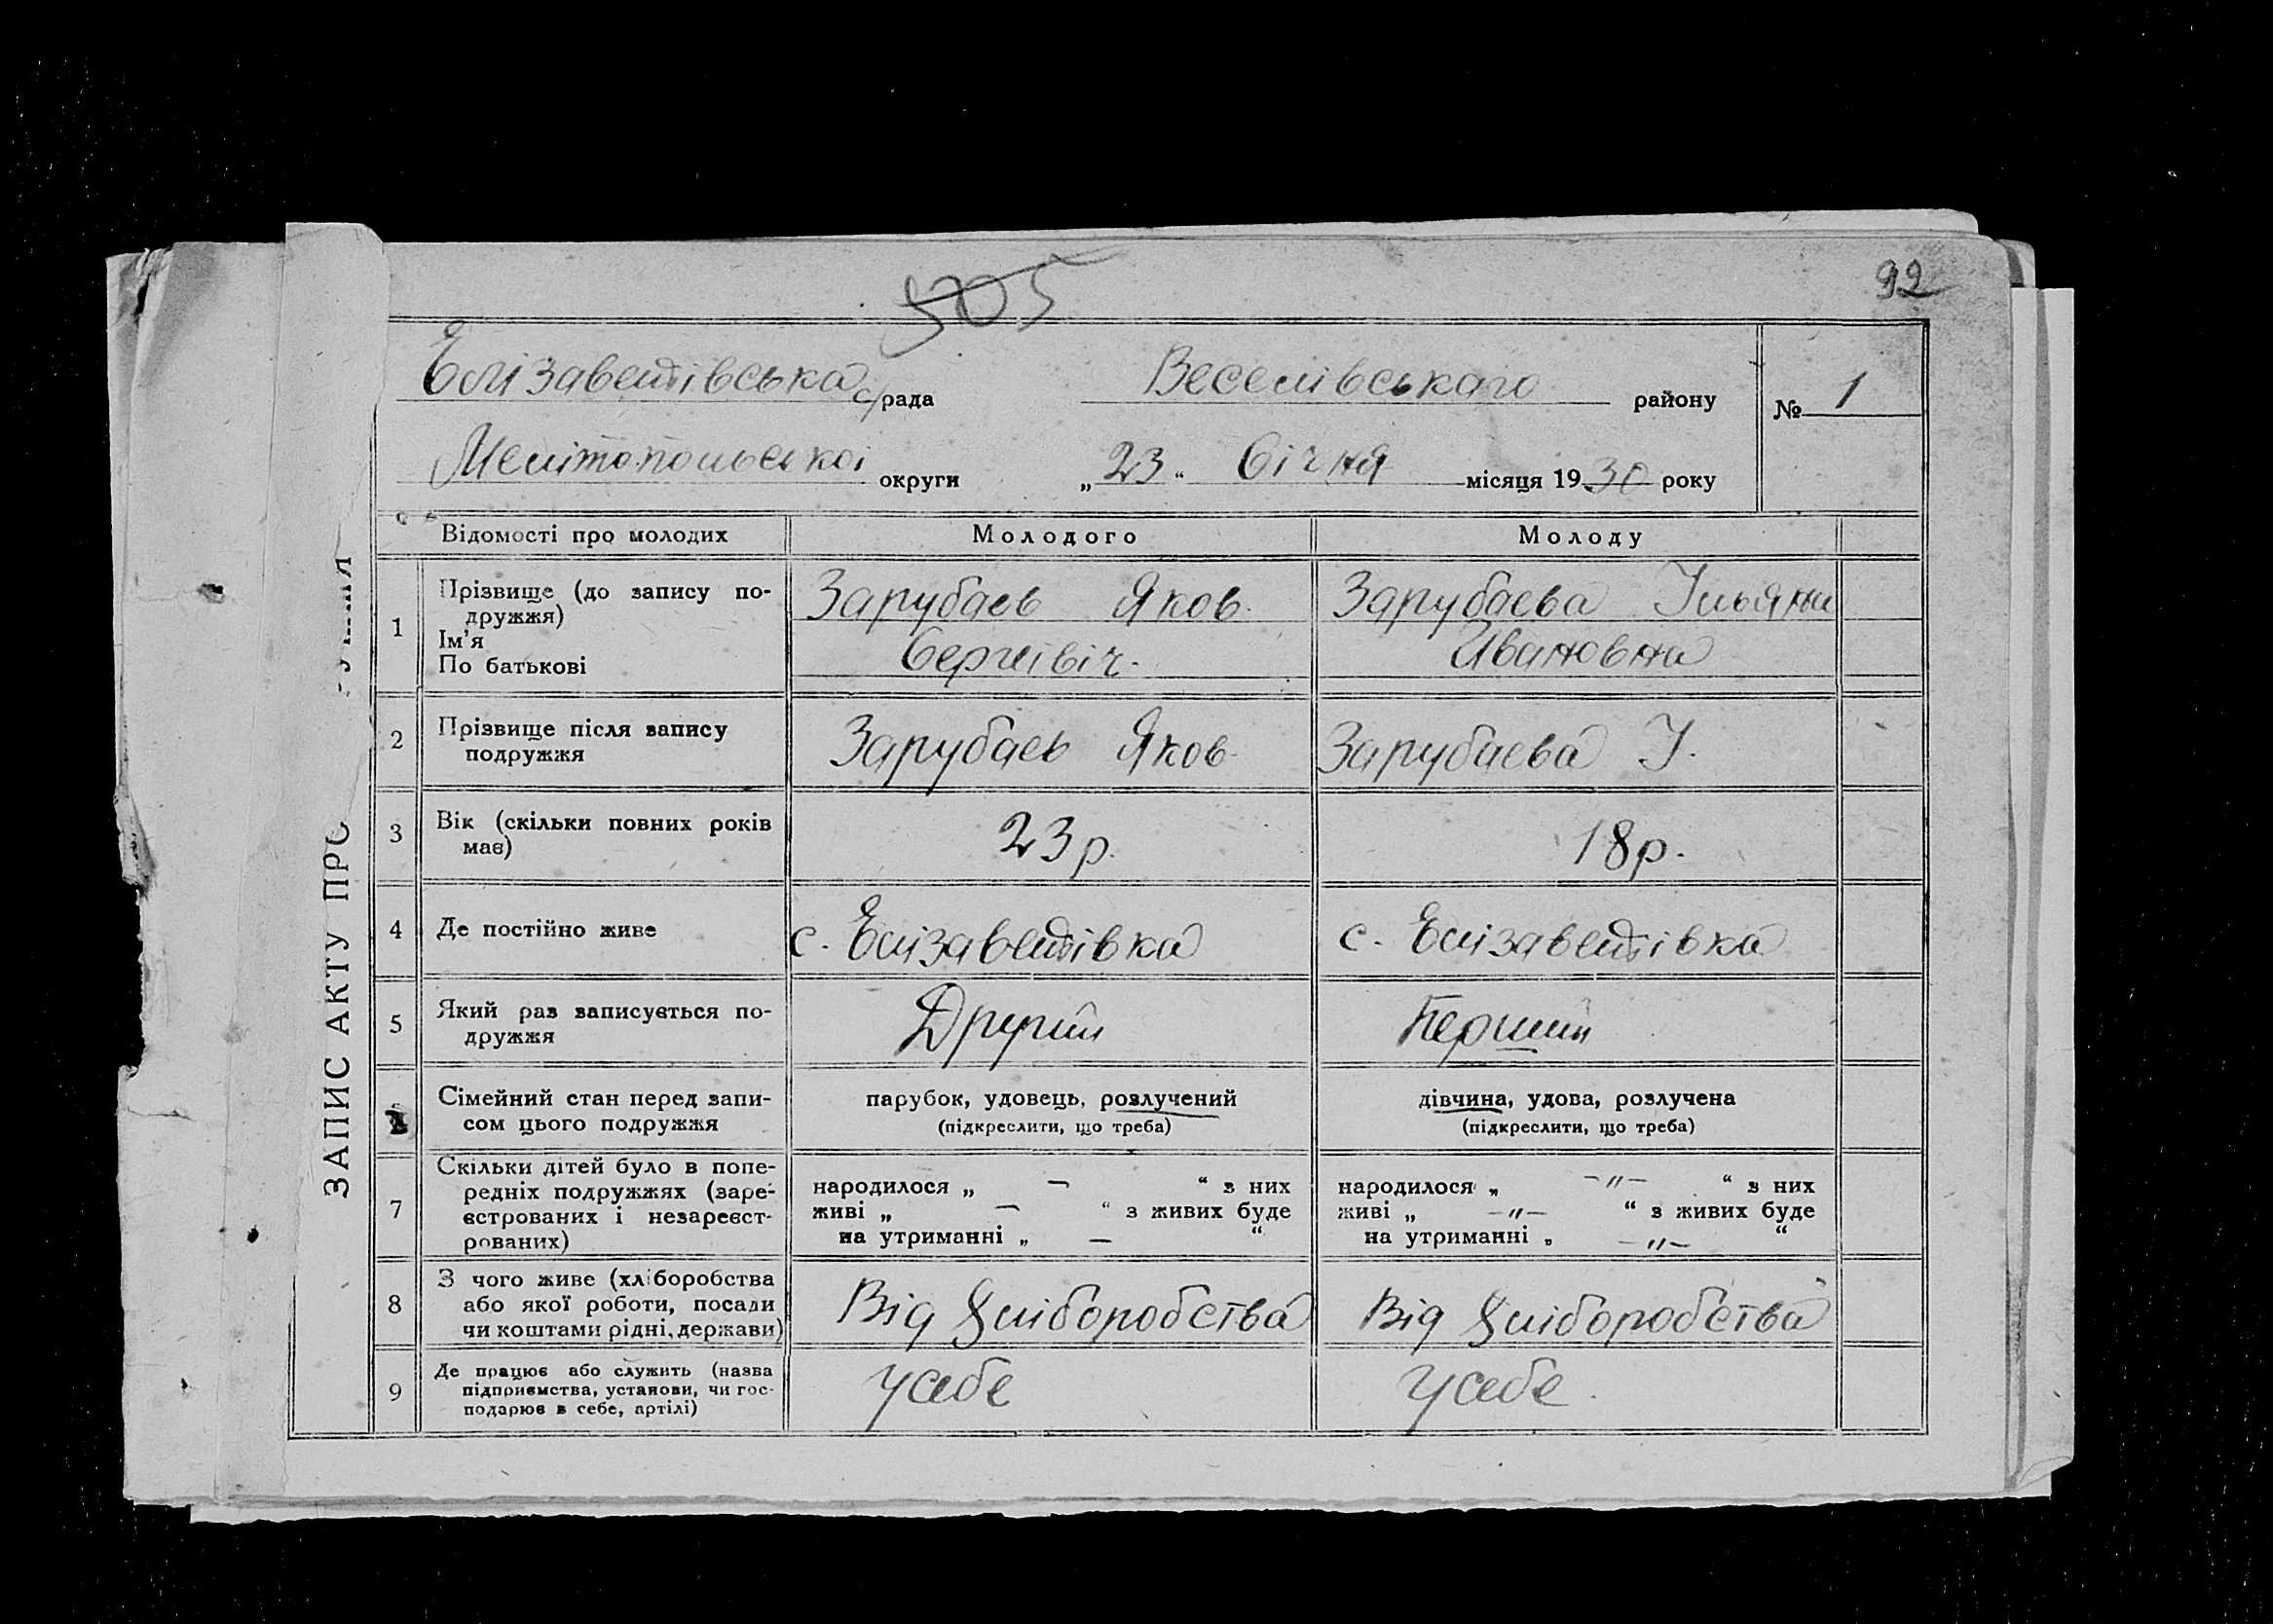 505
92
Елізаветівська с/рада Веселівськаго району № 1
Мелітопольської округи „23“ Січня місяця 1930 року
ЗАПИС АКТУ ПРО
Відомості про молодих Молодого Молоду
1 Прізвище (до запису по-
дружжя)
Ім’я
По батькові
Зарубаєв Яков
Сергіївіч.
Зарубаєва
Ивановна
2 Прізвище після запису
подружжя
Зарубаєв Яков
Зарубаєва У.
3 Вік (скільки повних років
має)
23 р.
18 р.
4 Де постійно живе
с. Елізаветівка
с. Елізаветівка
5 Який раз записується по-
дружжя
Другий
Перший
Сімейний стан перед запи-
сом цього подружжя
парубок, удовець, розлучений
(підкреслити, що треба)
дівчина, удова, розлучена
(підкреслити, що треба)
7 Скільки дітей було в попе-
редніх подружжях (заре-
єстрованих і незареєст-
рованих)
народилося „ — “ з них
живі „ — “ з живих буде
на утриманні „ — “
народилося „ —〃— “ з них
живі „ —〃— “ з живих буде
на утриманні „ —〃— “
8 З чого живе (хліборобства
або якої роботи, посади
чи коштами рідні, держави)
Від хліборобства
Від хліборобства
9 Де працює або служить (назва
підприємства, установи, чи гос-
подарює в себе, артілі)
усебе
усебе.